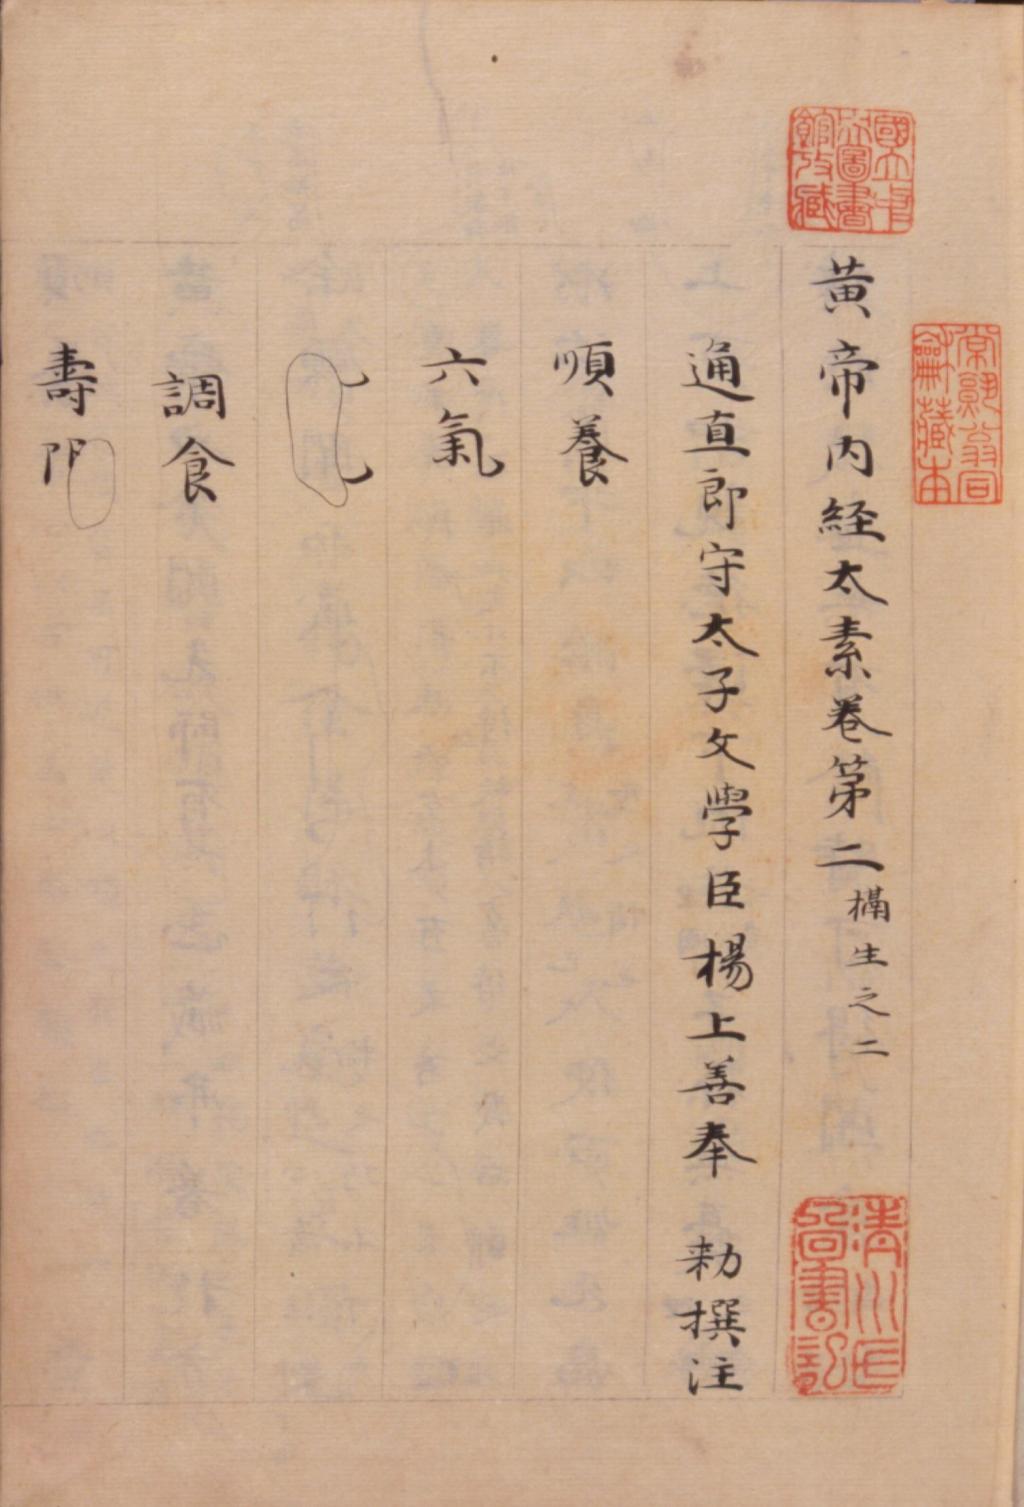 國立中央圖書館收藏
常熟翁同龢藏本
黃帝内経太素卷第二攝生之二
清川氏圖書記
通直郎守太子文學臣楊上善奉 勅撰注
順養
六氣
調食
壽